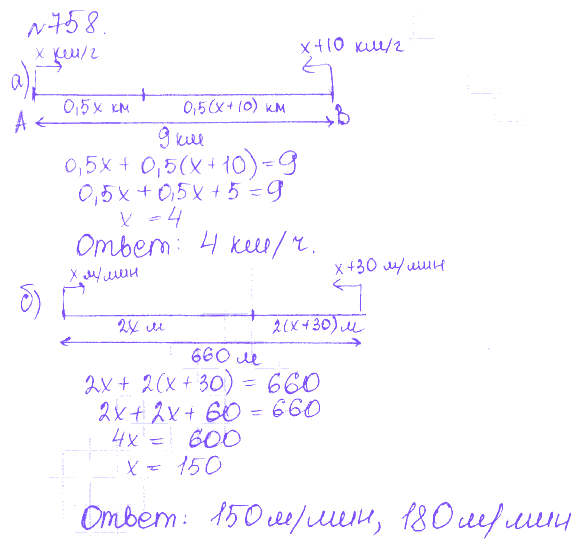 №758.
x км/г
x+10 км/г
а)
0,5x км
0,5(x+10) км
A
B
9 км
0,5x + 0,5(x+10)=9
0,5x+0,5x+5=9
x = 4
Ответ: 4 км/ч.
x м/мин
x+30 м/мин
б)
2x м
2(x+30) м
660 м
2x + 2(x+30) = 660
2x + 2x + 60 = 660
4x = 600
x = 150
Ответ: 150 м/мин, 180 м/мин